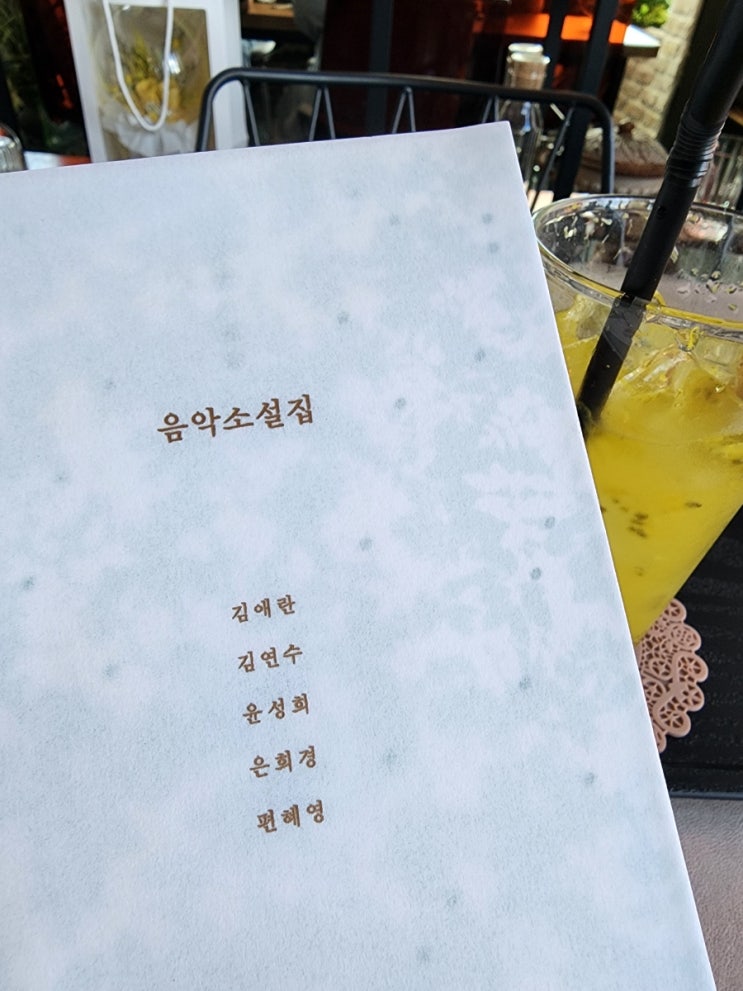 음악소설집
김애란
김연수
윤성희
은희경
편혜영